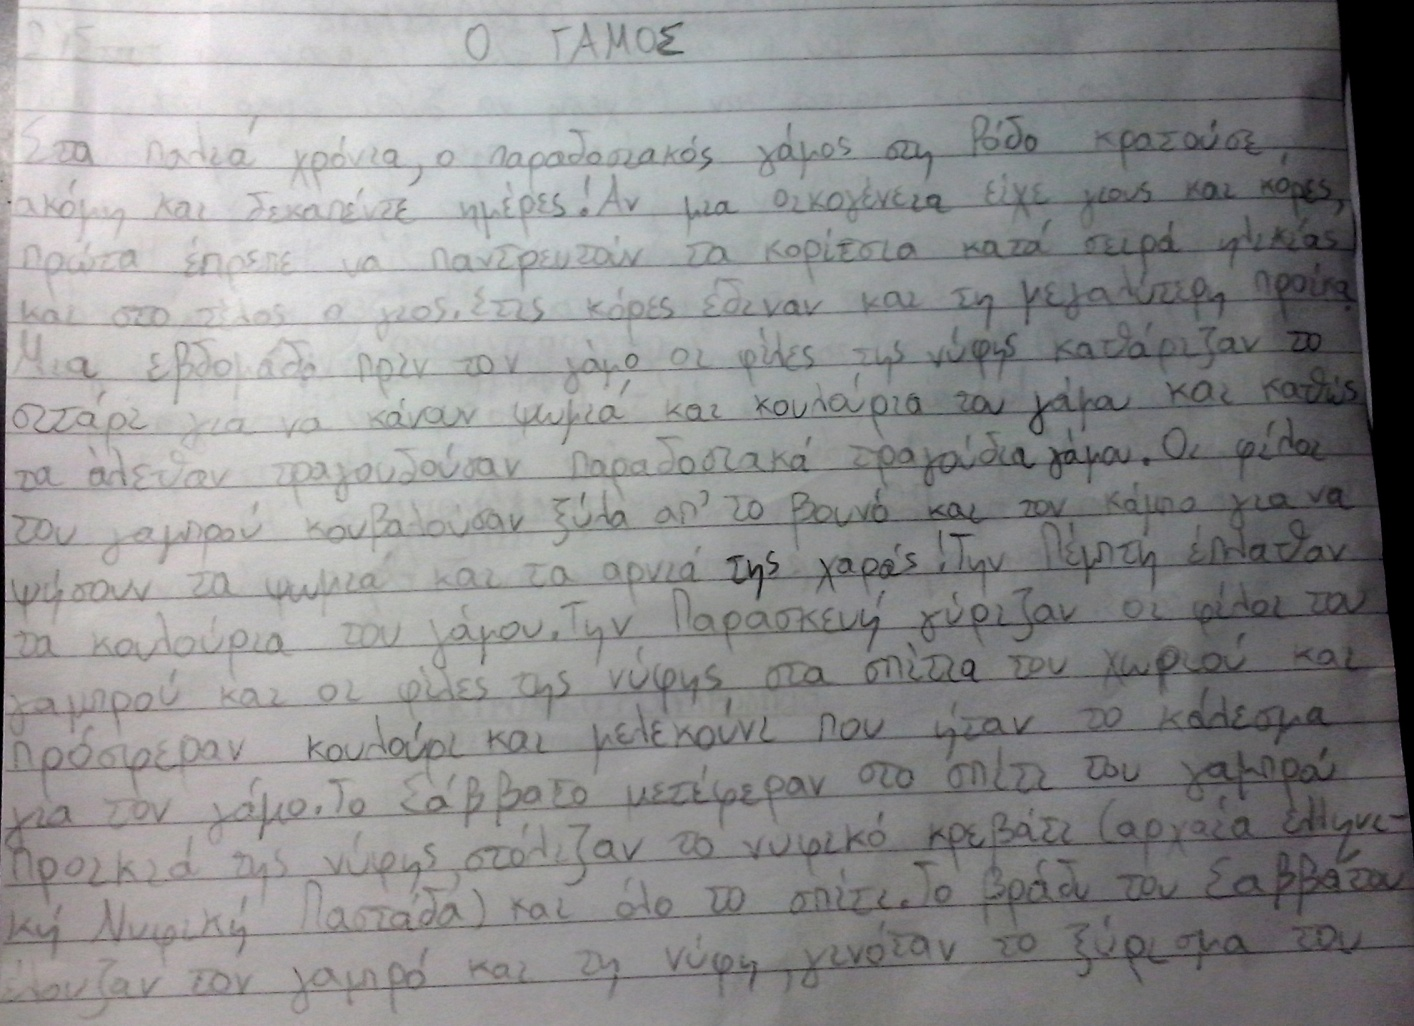 Ο ΓΑΜΟΣ
Στα παλιά χρόνια, ο παραδοσιακός γάμος στη Ρόδο κρατούσε
ακόμη και δεκαπέντε ημέρες! Αν μια οικογένεια είχε γιους και κόρες,
πρώτα έπρεπε να παντρευτούν τα κορίτσια κατά σειρά ηλικίας
και στο τέλος ο γιος. Στις κόρες έδιναν και τη μεγαλύτερη προίκα.
Μια εβδομάδα πριν τον γάμο οι φίλες της νύφης καθάριζαν το
σιτάρι για να κάνουν ψωμιά και κουλούρια του γάμου και καθώς
τα άλεθαν τραγουδούσαν παραδοσιακά τραγούδια γάμου. Οι φίλοι
του γαμπρού κουβαλούσαν ξύλα απ' το βουνό και τον κάμπο για να
ψήσουν τα ψωμιά και τα αρνιά της χαράς! Την Πέμπτη έπλαθαν
τα κουλούρια του γάμου. Την Παρασκευή γύριζαν οι φίλοι του
γαμπρού και οι φίλες της νύφης, στα σπίτια του χωριού και
πρόσφεραν κουλούρι και μελεκούνι που ήταν το κάλεσμα
για τον γάμο. Το Σάββατο μετέφεραν στο σπίτι του γαμπρού
προικιά της νύφης, στόλιζαν το νυφικό κρεβάτι (αρχαία ελληνι-
κή Νυφική Παστάδα) και όλο το σπίτι. Το βράδυ του Σαββάτου
έλουζαν τον γαμπρό και τη νύφη, γινόταν το ξύρισμα του